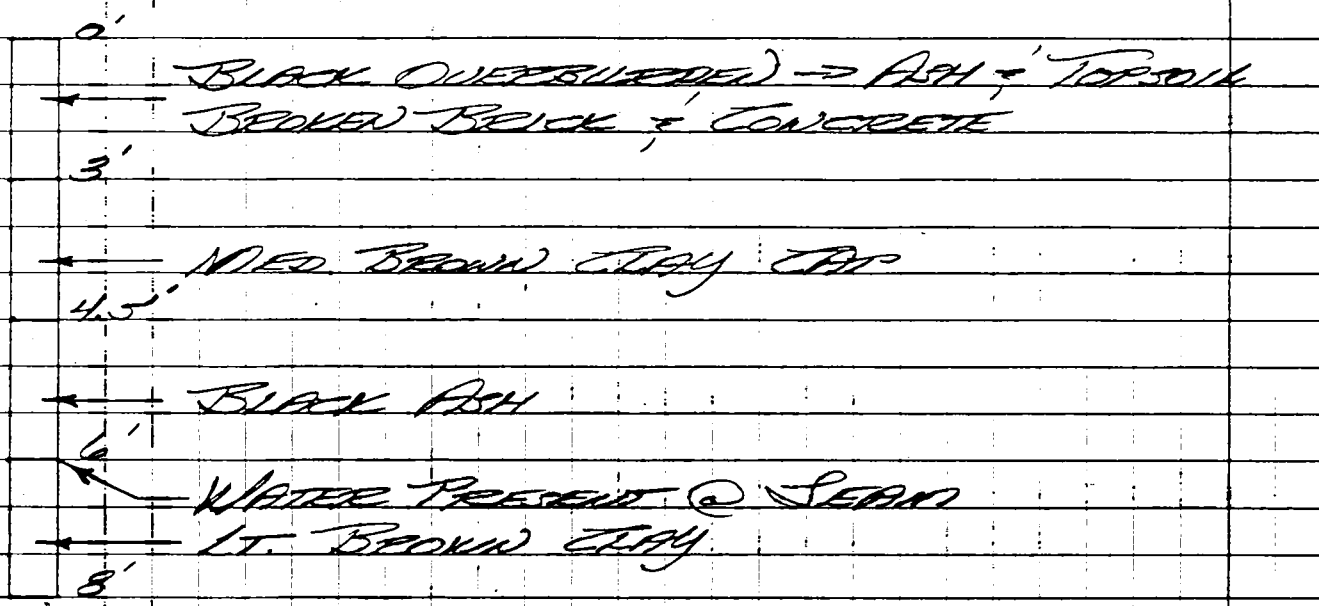 0'
BLACK OVERBURDEN → ASH & TOPSOIL
BROKEN BRICK & CONCRETE
3'
MED. BROWN CLAY CAP
4.5'
BLACK ASH
6'
WATER PRESENT @ SEAM
LT. BROWN CLAY
8'